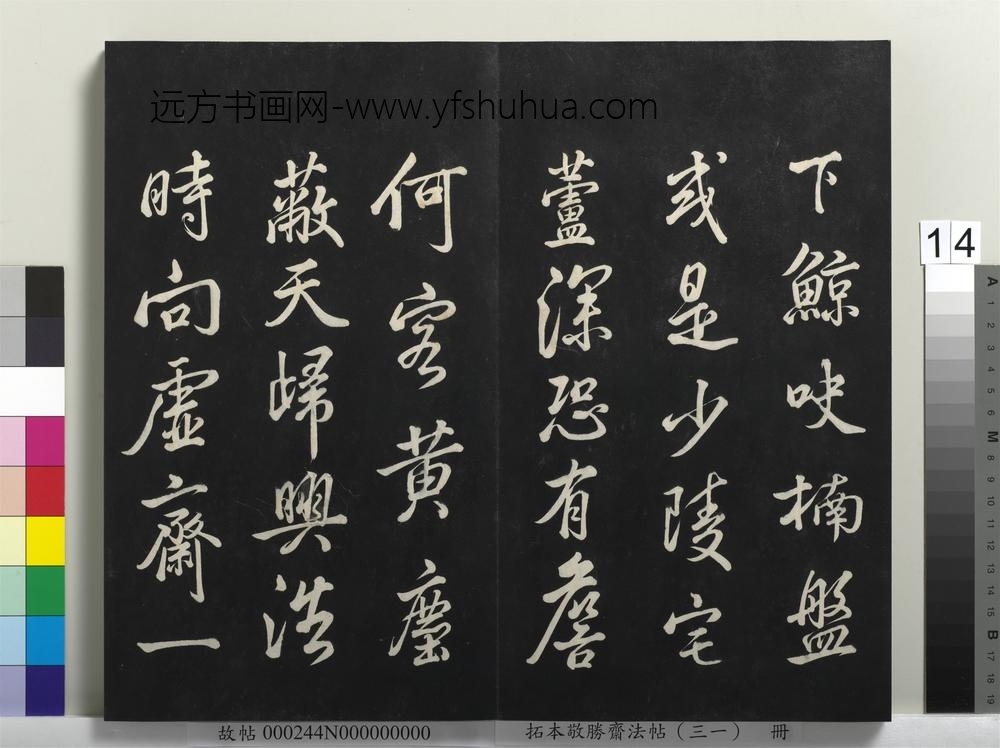 远方书画网-www.yfshuhua.com
下鯨吷楠盤
或是少陵宅
蘆深恐有詹
何客黃塵
蔽天歸興浩
時向虛齋一
14
A 1 2 3 4 5 6 M 8 9 10 11 12 13 14 15 B 17 18 19
故帖 000244N000000000
拓本敬勝齋法帖（三一） 冊